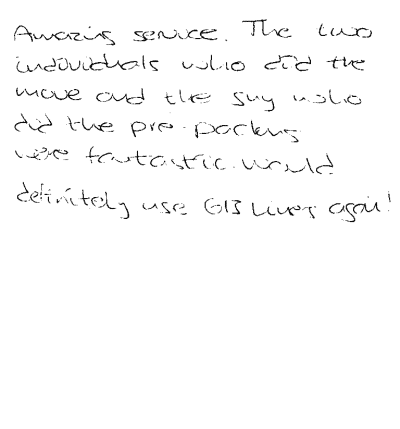 Amazing service. The two
individuals who did the
move and the guy who
did the pre-packing
were fantastic. Would
definitely use GB Liners again!